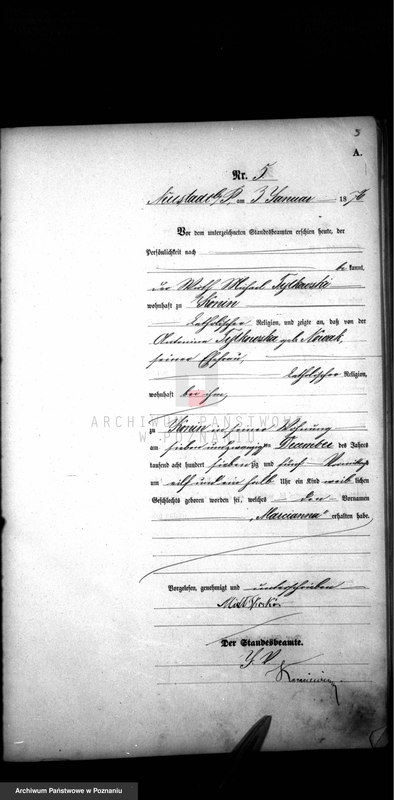 5
A.
Nr. 5
Neustadt b/P. am 3 Januar 1876
Vor dem unterzeichneten Standesbeamten erschien heute, der
Persönlichkeit nach
be kannt,
der Wirth Michael
wohnhaft zu Konin
katholischer Religion, und zeigte an, daß von der
Antonina geb. Nowak,
seiner Ehefrau,
katholischer Religion,
wohnhaft bei ihm,
ARCHIWUM PAŃSTWOWE
W POZNANIU
zu Konin in seiner Wohnung
am sieben und zwanzig ten December des Jahres
tausend acht hundert sieben zig und fünf Vormittags
um eilf und ein halb Uhr ein Kind weib lichen
Geschlechts geboren worden sei, welches den Vornamen
„Marcianna" erhalten habe.
Vorgelesen, genehmigt und unterschrieben
Der Standesbeamte.
Archiwum Państwowe w Poznaniu